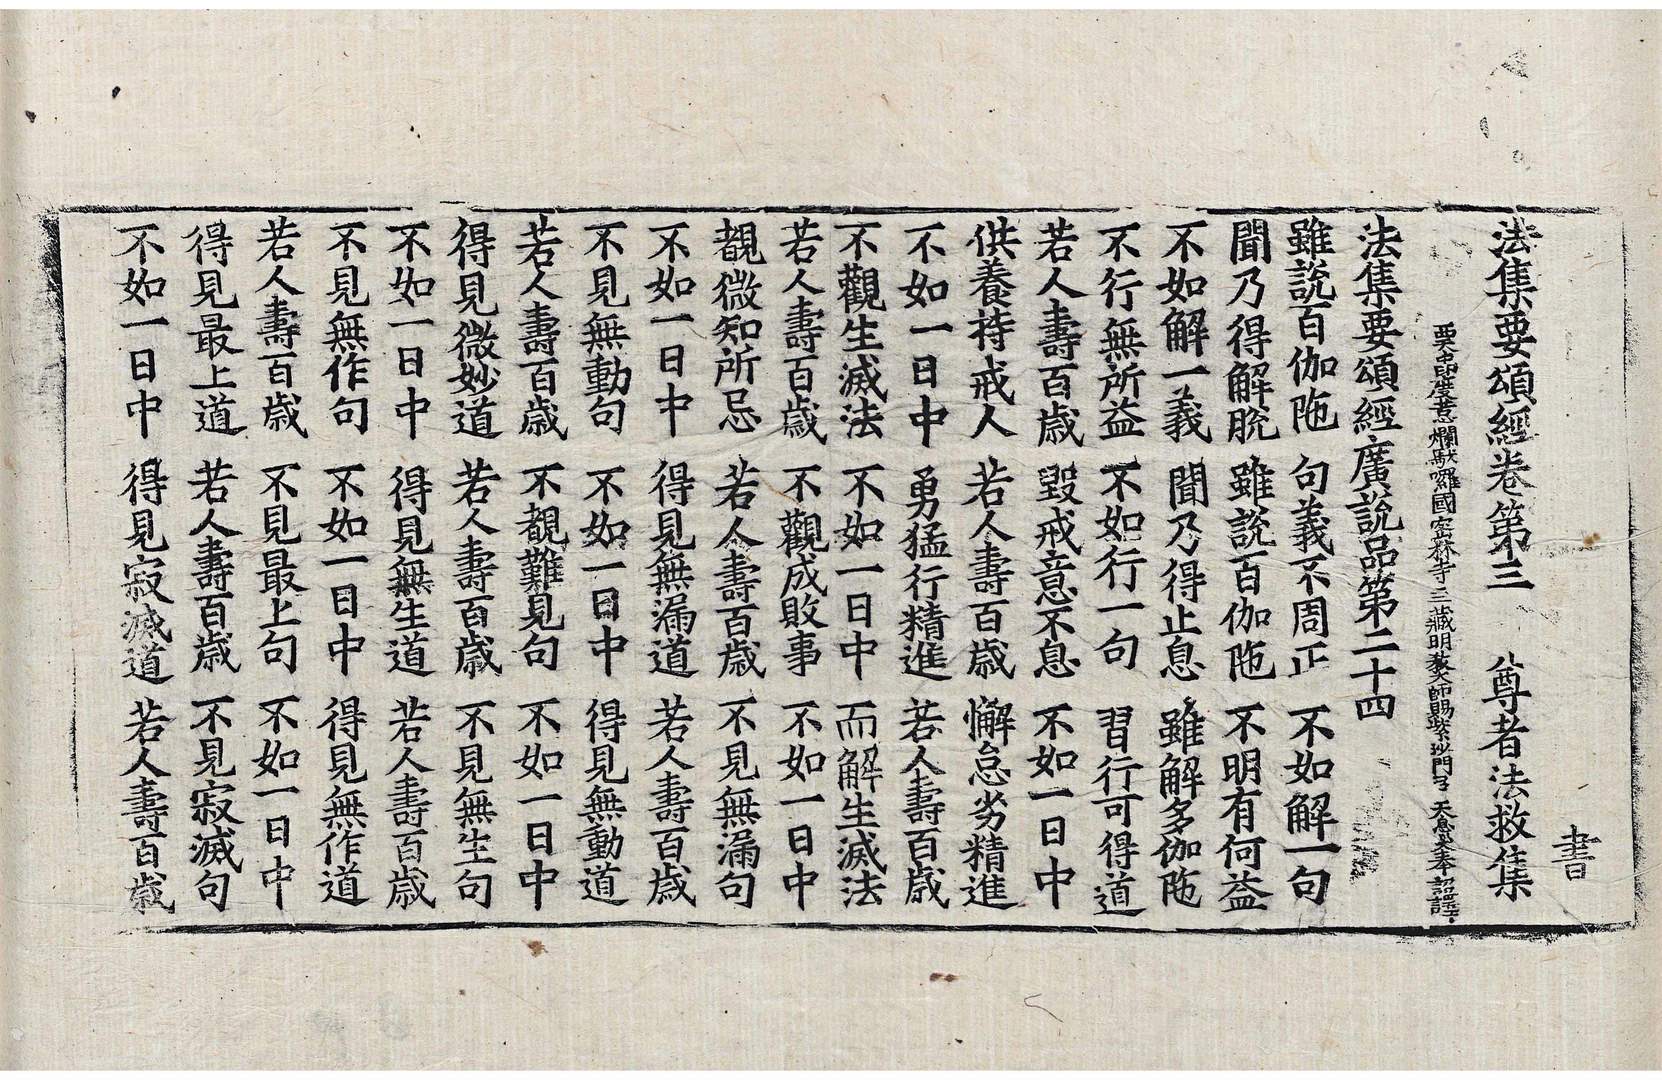 書
法集要頌經卷第三 尊者法救集
天息災奉 詔譯
法集要頌經廣說品第二十四
雖說百伽陁 句義不周正 不如解一句
聞乃得解脫 雖說百伽陁 不明有何益
不如解一義 聞乃得止息 雖解多伽陁
不行無所益 不如行一句 習行可得道
若人壽百歲 毀戒意不息 不如一日中
供養持戒人 若人壽百歲 懈怠劣精進
不如一日中 勇猛行精進 若人壽百歲
不觀生滅法 不如一日中 而解生滅法
若人壽百歲 不觀成敗事 不如一日中
覩微知所忌 若人壽百歲 不見無漏句
不如一日中 得見無漏道 若人壽百歲
不見無動句 不如一日中 得見無動道
若人壽百歲 不覩難見句 不如一日中
得見微妙道 若人壽百歲 不見無生句
不如一日中 得見無生道 若人壽百歲
不見無作句 不如一日中 得見無作道
若人壽百歲 不見最上句 不如一日中
得見最上道 若人壽百歲 不見寂滅句
不如一日中 得見寂滅道 若人壽百歲